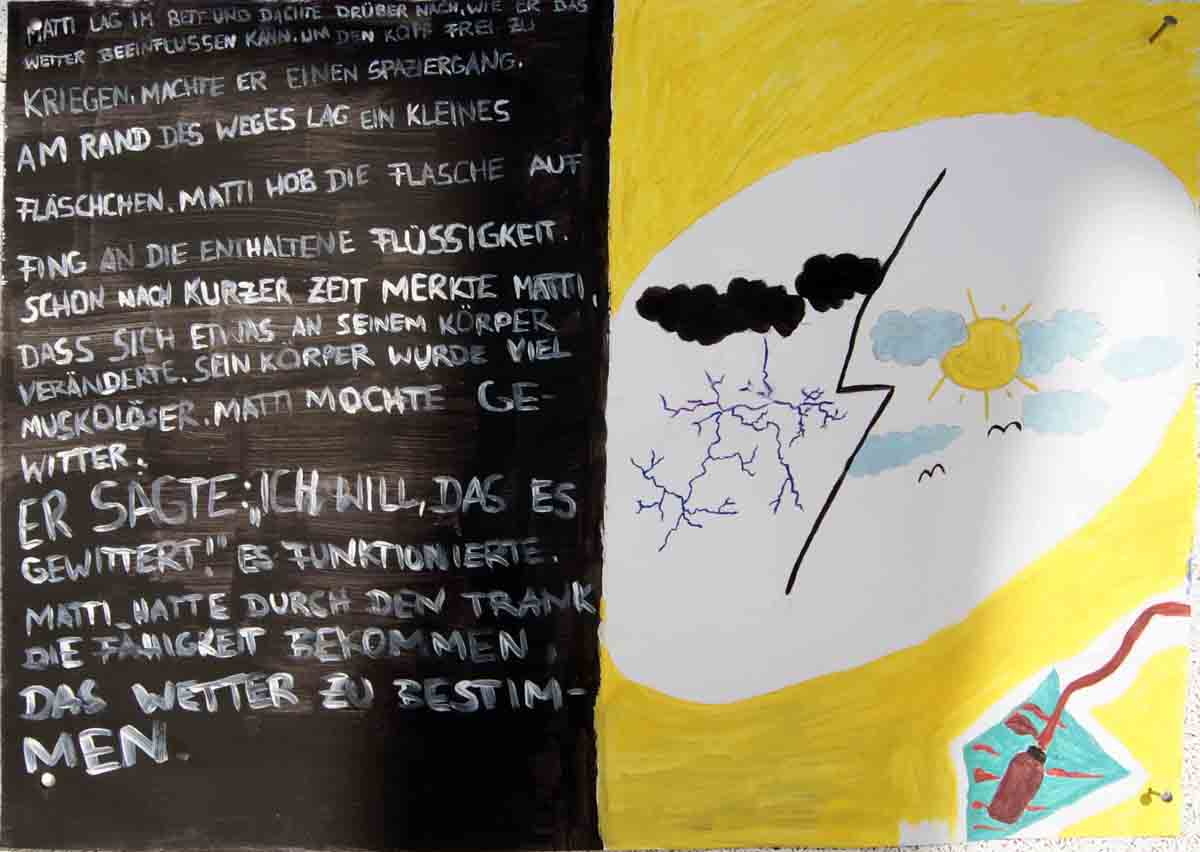 MATTI LAG IM BETT UND DACHTE DRÜBER NACH, WIE ER DAS
WETTER BEEINFLUSSEN KANN. UM DEN KOPF FREI ZU
KRIEGEN, MACHTE ER EINEN SPAZIERGANG.
AM RAND DES WEGES LAG EIN KLEINES
FLÄSCHCHEN. MATTI HOB DIE FLASCHE AUF
FING AN DIE ENTHALTENE FLÜSSIGKEIT.
SCHON NACH KURZER ZEIT MERKTE MATTI,
DASS SICH ETWAS AN SEINEM KÖRPER
VERÄNDERTE. SEIN KÖRPER WURDE VIEL
MUSKOLÖSER. MATTI MOCHTE GE-
WITTER.
ER SAGTE: „ICH WILL, DAS ES
GEWITTERT!" ES FUNKTIONIERTE.
MATTI HATTE DURCH DEN TRANK
DIE FÄHIGKEIT BEKOMMEN,
DAS WETTER ZU BESTIM-
MEN.